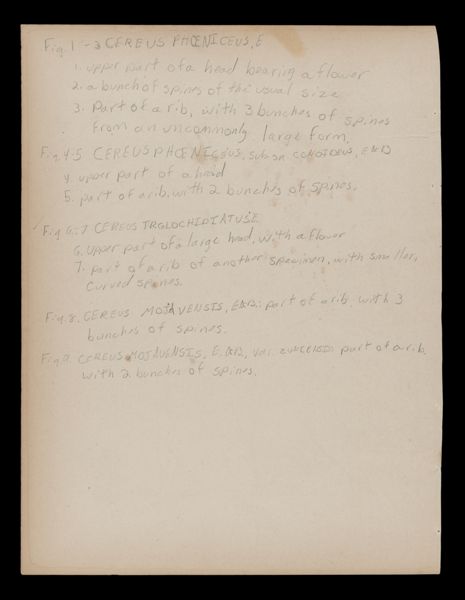 Fig. 1-3 CEREUS PHŒNICEUS, E
1. upper part of a head bearing a flower
2. a bunch of spines of the usual size
3. Part of a rib, with 3 bunches of spines
From an uncommonly large form.
Fig 4-5 CEREUS PHŒNICEUS, subsn CONOIDEUS, E&B
4. upper part of a head
5. part of a rib, with 2 bunches of spines.
Fig 6-7 CEREUS TRGLOCHIDIATUS E
6. upper part of a large head, with a flower
7. part of a rib of another specimen, with smaller,
curved spines.
Fig. 8. CEREUS MOJAVENSIS, E&B.: part of a rib with 3
bunches of spines.
Fig 9. CEREUS MOJAVENSIS, E.&B, var. part of a rib
with 2 bunches of spines.